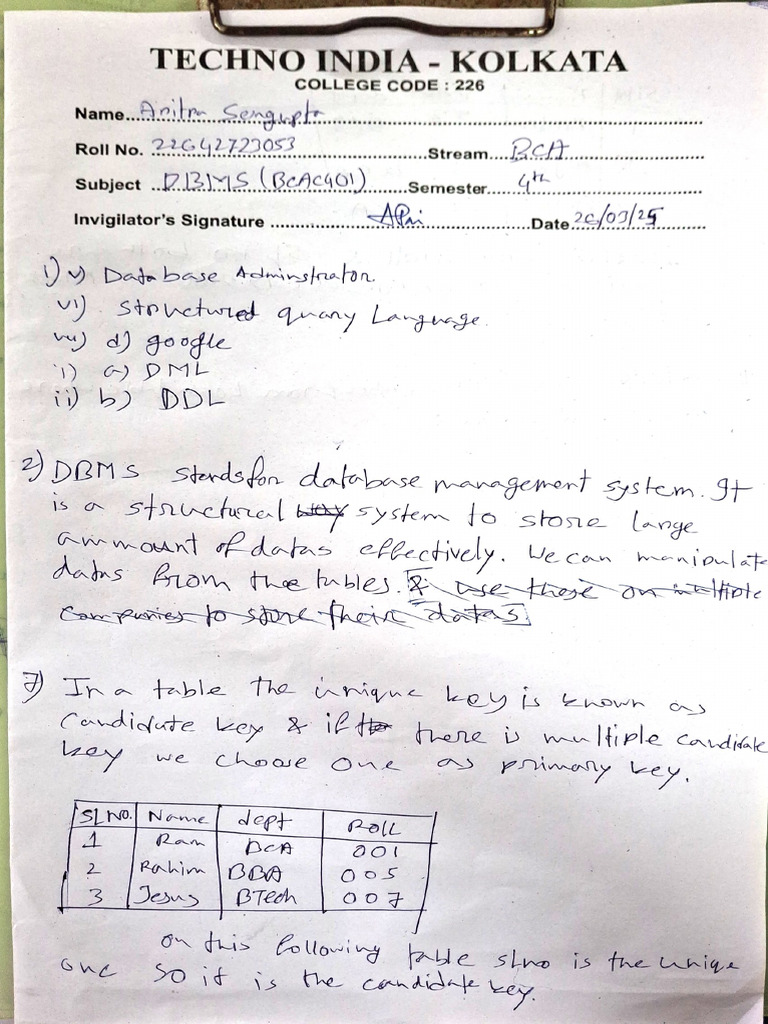 TECHNO INDIA - KOLKATA
COLLEGE CODE : 226
Name Aritra Sengupta
Roll No. 22642723053 Stream BCA
Subject DBMS (BCAC401) Semester 4th
Invigilator's Signature Date 26/03/25
1) v) Database Adminstrator
vi) Structured quary Language
vii) d) google
i) a) DML
ii) b) DDL
2) DBMS stands for database management system. It
is a structural way system to store large
ammount of datas effectively. We can manipulate
datas from the tables. & use these on multiple
companies to store their datas
7) In a table the unique key is known as
Candidate key & if there is multiple candidate
key we choose one as primary key.
SL NO. Name dept ROLL
1 Ram BCA 001
2 Rahim BBA 005
3 Jesus BTech 007
on this following table slno is the unique
one so it is the candidate key.